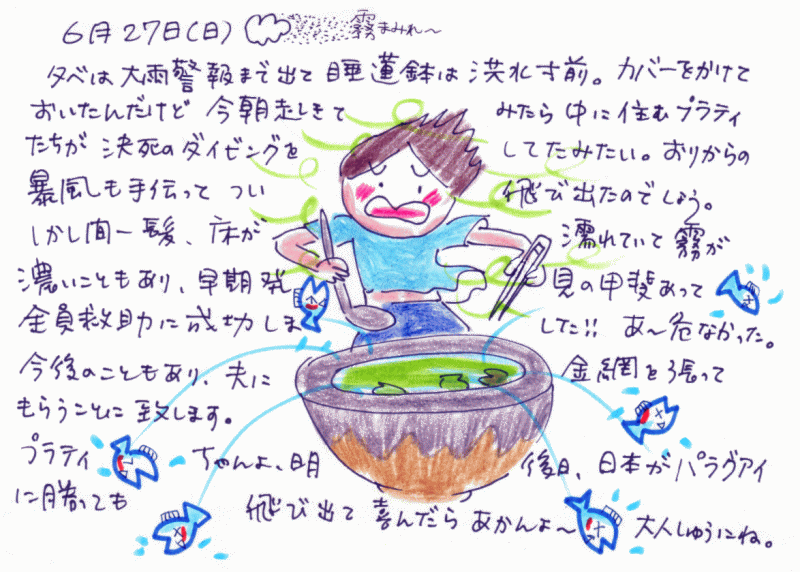 6月27日(日) 霧まみれ〜
夕べは大雨警報まで出て睡蓮鉢は洪水寸前。カバーをかけて
おいたんだけど今朝起しきて みたら中に住むプラティ
たちが決死のダイビングを してたみたい。おりからの
暴風しも手伝ってつい 飛び出たのでしょう。
しかし間一髪、床が 濡れていて霧が
濃いこともあり、早期発 見の甲斐あって
全員救助に成功しま した!! あ〜危なかった。
今後のこともあり、夫に 金網を張って
もらうことに致します。
プラティ ちゃんよ、明 後日、日本がパラグアイ
に勝っても 飛び出て喜んだらあかんよ〜 大人しゅうにね。